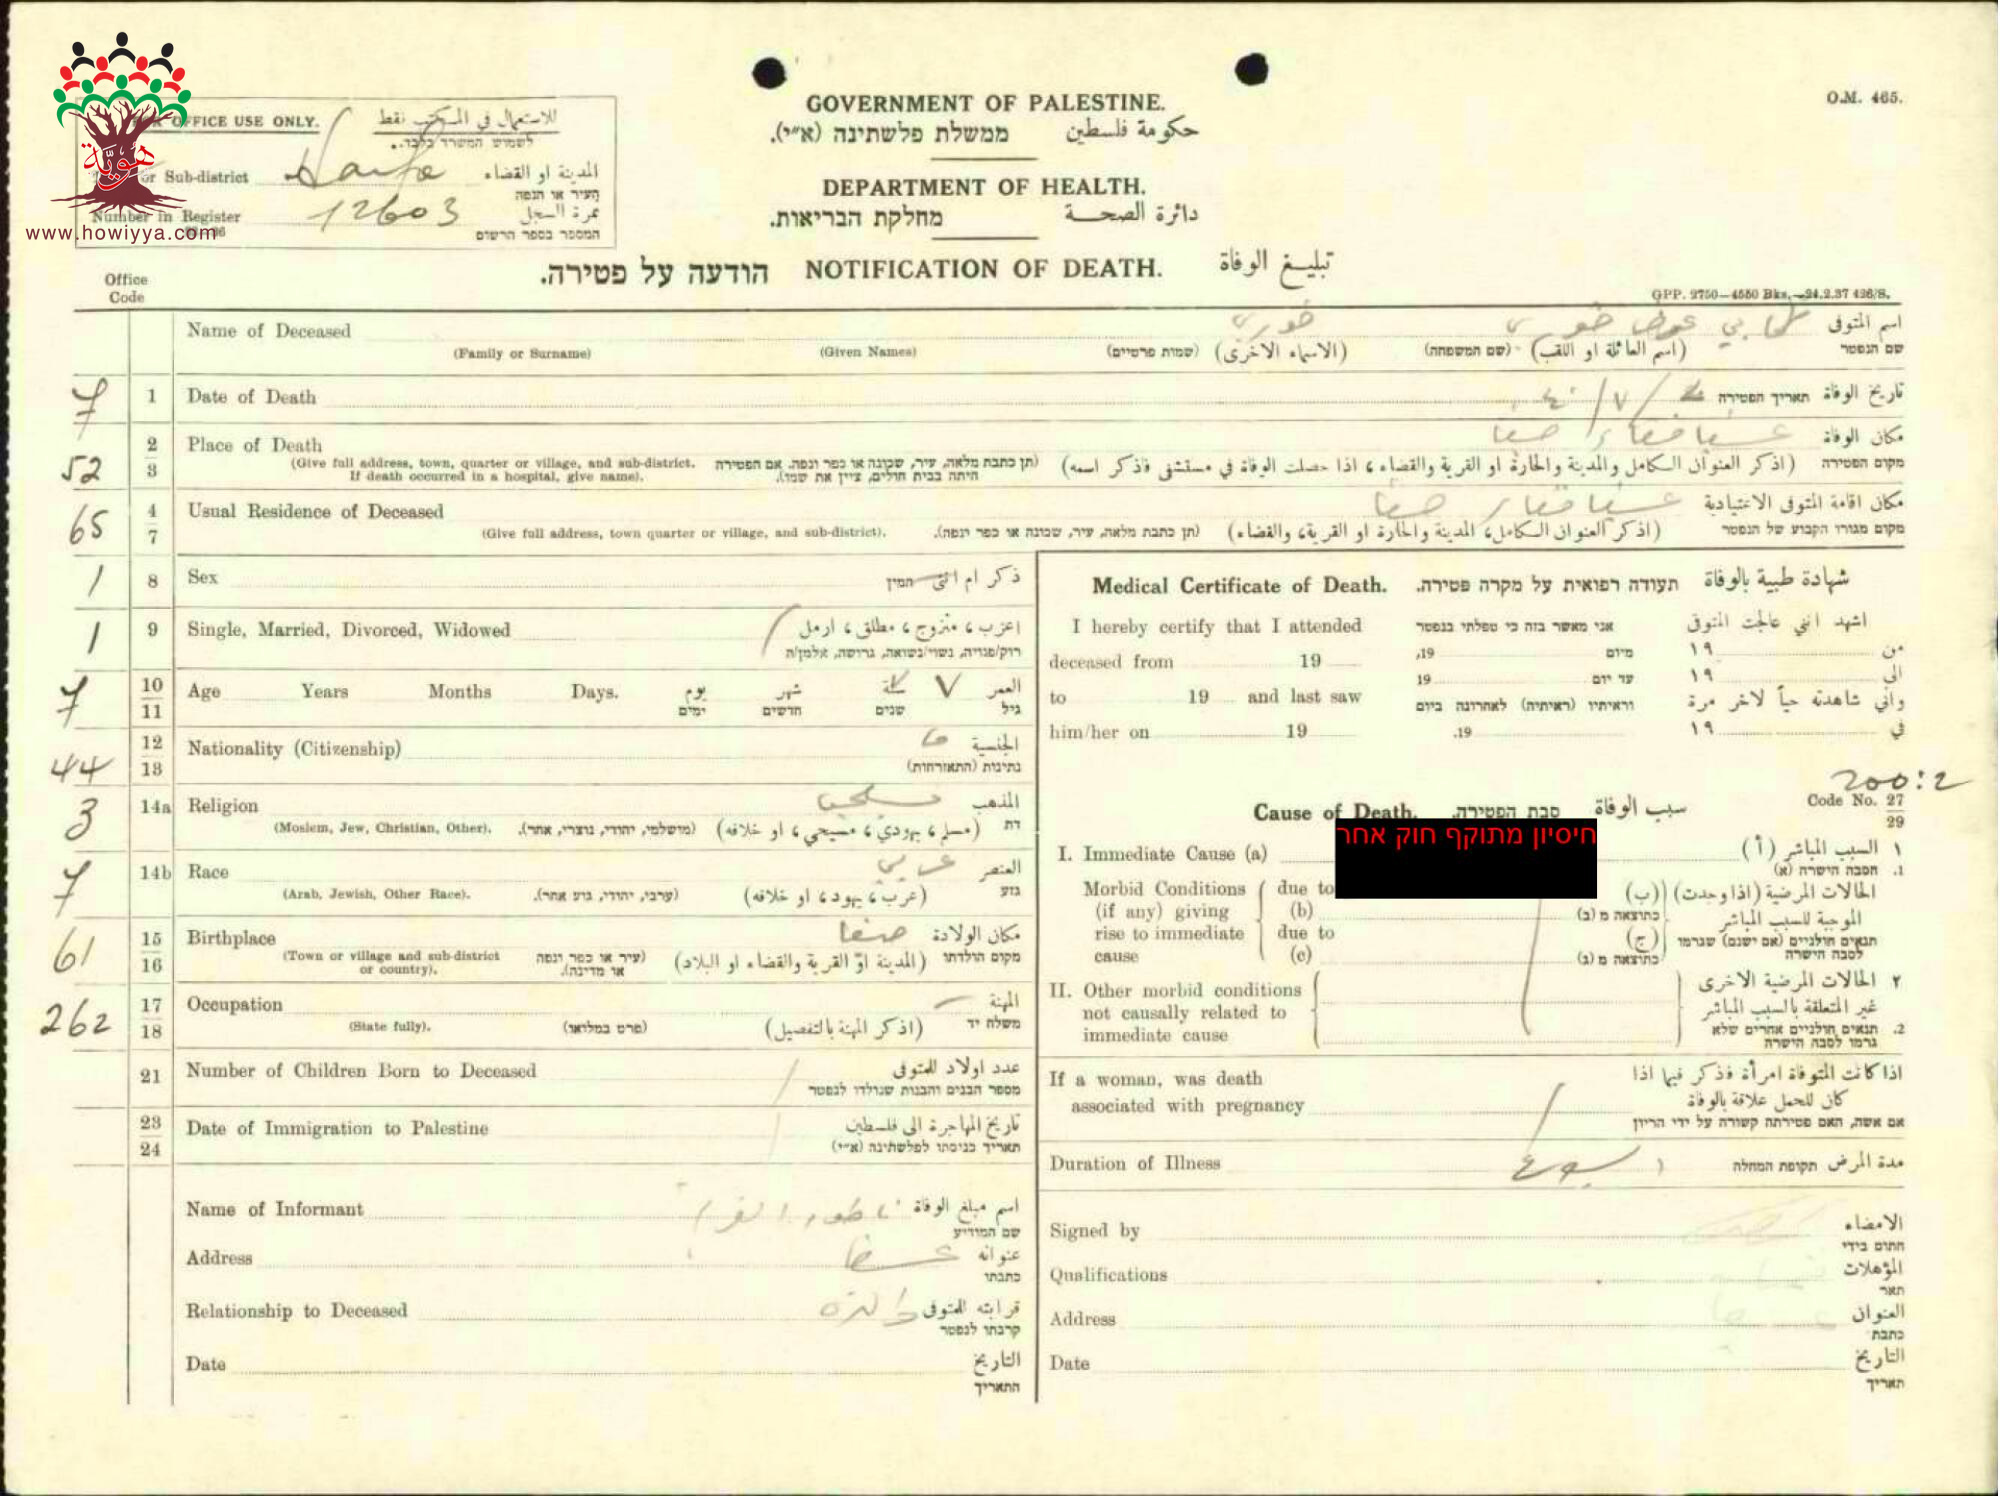 O.M. 465.
FOR OFFICE USE ONLY.
للاستعمال في المكتب فقط
לשמוש המשרד בלבד.
or Sub-district
Haifa
المدينة او القضاء
העיר או הנפה
Number in Register
12603
نمرة السجل
המספר בספר הרשום
هُوِيَّة
www.howiyya.com
GOVERNMENT OF PALESTINE.
ממשלת פלשתינה (א״י). حكومة فلسطين
DEPARTMENT OF HEALTH.
מחלקת הבריאות. دائرة الصحة
הודעה על פטירה. NOTIFICATION OF DEATH. تبليغ الوفاة
GPP. 2750—4550 Bks.—24.2.37 426/S.
Office
Code
Name of Deceased
خوري
اسم المتوفى
שם הנפטר
(Family or Surname) (Given Names) (שמות פרטיים) (الاسماء الاخرى) (שם המשפחה) - (اسم العائلة او اللقب)
7
1
Date of Death
תאריך הפטירה تاريخ الوفاة
52
2
3
Place of Death
مكان الوفاة
מקום הפטירה
(Give full address, town, quarter or village, and sub-district.
If death occurred in a hospital, give name).
(תן כתבת מלאה, עיר, שכונה או כפר ונפה. אם הפטירה
היתה בבית חולים, ציין את שמו).
(اذكر العنوان الكامل والمدينة والحارة او القرية والقضاء، اذا حصلت الوفاة في مستشفى فاذكر اسمه)
65
4
7
Usual Residence of Deceased
مكان اقامة المتوفى الاعتيادية
מקום מגורו הקבוע של הנפטר
(Give full address, town quarter or village, and sub-district).
(תן כתבת מלאה, עיר, שכונה או כפר ונפה).
(اذكر العنوان الكامل، المدينة والحارة او القرية، والقضاء)
1
8
Sex
המין ذكر ام انثى
1
9
Single, Married, Divorced, Widowed
اعزب، متزوج، مطلق، ارمل
רוק/פנויה, נשוי/נשואה, גרושה, אלמן/ה
7
10
11
Age Years Months Days.
يوم شهر سنة ٧ العمر
ימים חדשים שנים גיל
44
12
13
Nationality (Citizenship)
الجنسية
נתינות (התאזרחות)
3
14a
Religion
المذهب
דת
(Moslem, Jew, Christian, Other). (מושלמי, יהודי, נוצרי, אחר). (مسلم، يهودي، مسيحي، او خلافه)
7
14b
Race
عربي
العنصر
גזע
(Arab, Jewish, Other Race). (ערבי, יהודי, גזע אחר). (عرب، يهود، او خلافه)
61
15
16
Birthplace
مكان الولادة
מקום הולדתו
(Town or village and sub-district
or country).
(עיר או כפר ונפה
או מדינה).
(المدينة او القرية والقضاء او البلاد)
262
17
18
Occupation
المهنة
משלח יד
(State fully). (פרט במלואו) (اذكر المهنة بالتفصيل)
21
Number of Children Born to Deceased
عدد اولاد المتوفى
מספר הבנים והבנות שנולדו לנפטר
23
24
Date of Immigration to Palestine
تاريخ المهاجرة الى فلسطين
תאריך כניסתו לפלשתינה (א״י)
Name of Informant
اسم مبلغ الوفاة
שם המודיע
Address
عنوانه
כתבתו
Relationship to Deceased
والده
قرابته للمتوفى
קרבתו לנפטר
Date
التاريخ
התאריך
Medical Certificate of Death. תעודה רפואית על מקרה פטירה. شهادة طبية بالوفاة
I hereby certify that I attended
אני מאשר בזה כי טפלתי בנפטר
اشهد انني عالجت المتوفى
deceased from 19
מיום 19,
من ١٩
עד יום 19
الى ١٩
to 19 and last saw
וראיתיו (ראיתיה) לאחרונה ביום
واني شاهدته حياً لاخر مرة
him/her on 19
19.
في ١٩
200:2
Code No. 27
29
Cause of Death. סבת הפטירה. سبب الوفاة
חיסיון מתוקף חוק אחר
I. Immediate Cause (a)
١ السبب المباشر (أ)
1. הסבה הישרה (א)
Morbid Conditions
(if any) giving
rise to immediate
cause
due to
(b)
due to
(c)
الحالات المرضية (اذا وجدت)
الموجبة للسبب المباشر
תנאים חולניים (אם ישנם) שגרמו
לסבה הישרה
(ب)
כתוצאה מ (ב)
(ج)
כתוצאה מ (ג)
II. Other morbid conditions
not causally related to
immediate cause
٢ الحالات المرضية الاخرى
غير المتعلقة بالسبب المباشر
2. תנאים חולניים אחרים שלא
גרמו לסבה הישרה
If a woman, was death
associated with pregnancy
اذا كانت المتوفاة امرأة فذكر فيما اذا
كان للحمل علاقة بالوفاة
אם אשה, האם פטירתה קשורה על ידי הריון
Duration of Illness
תקופת המחלה مدة المرض
Signed by
الامضاء
חתום בידי
Qualifications
المؤهلات
תאר
Address
العنوان
כתבת
Date
التاريخ
תאריך